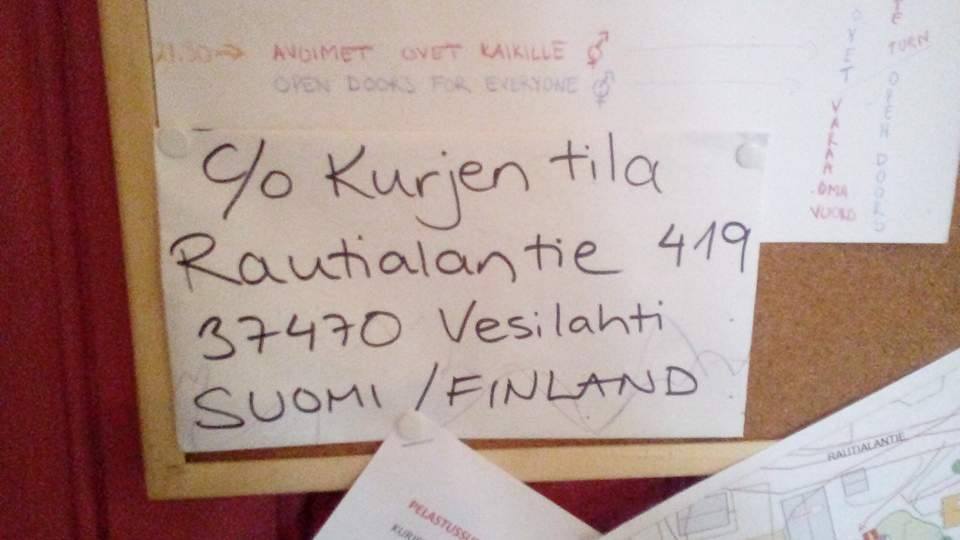 21.30→ AVOIMET OVET KAIKILLE
OPEN DOORS FOR EVERYONE
OVET
VARAA
OMA
VUORO
TURN
OPEN DOORS
c/o Kurjen tila
Rautialantie 419
37470 Vesilahti
SUOMI / FINLAND
RAUTIALANTIE